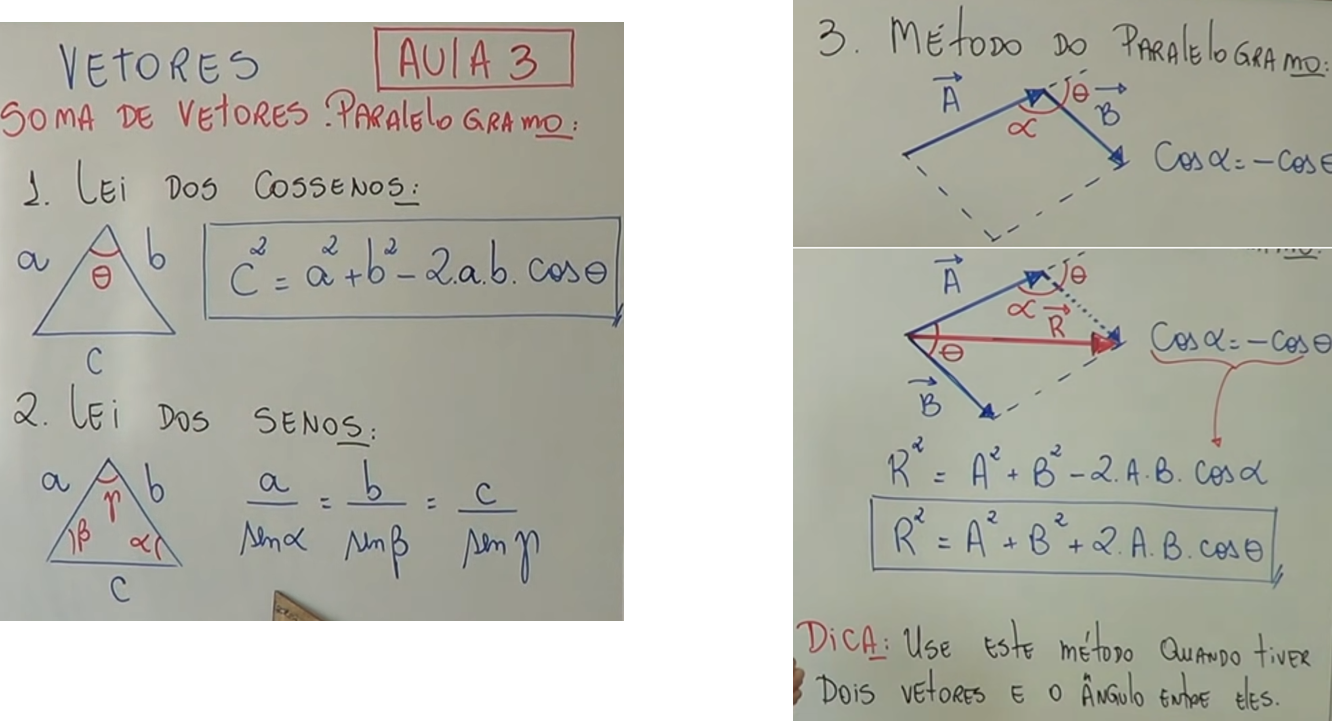 VETORES
AULA 3
SOMA DE VETORES: PARALELOGRAMO:
1. LEI DOS COSSENOS:
a
b
θ
c
C² = a² + b² - 2.a.b. cosθ
2. LEI DOS SENOS:
a
b
γ
β
α
c
a/senα = b/senβ = c/senγ
3. MÉTODO DO PARALELOGRAMO:
A⃗
θ
B⃗
α
Cosα = -cosθ
A⃗
θ
α
R⃗
θ
B⃗
Cosα = -cosθ
R² = A² + B² - 2.A.B. cosα
R² = A² + B² + 2.A.B. cosθ
DICA: USE ESTE MÉTODO QUANDO TIVER
DOIS VETORES E O ÂNGULO ENTRE ELES.